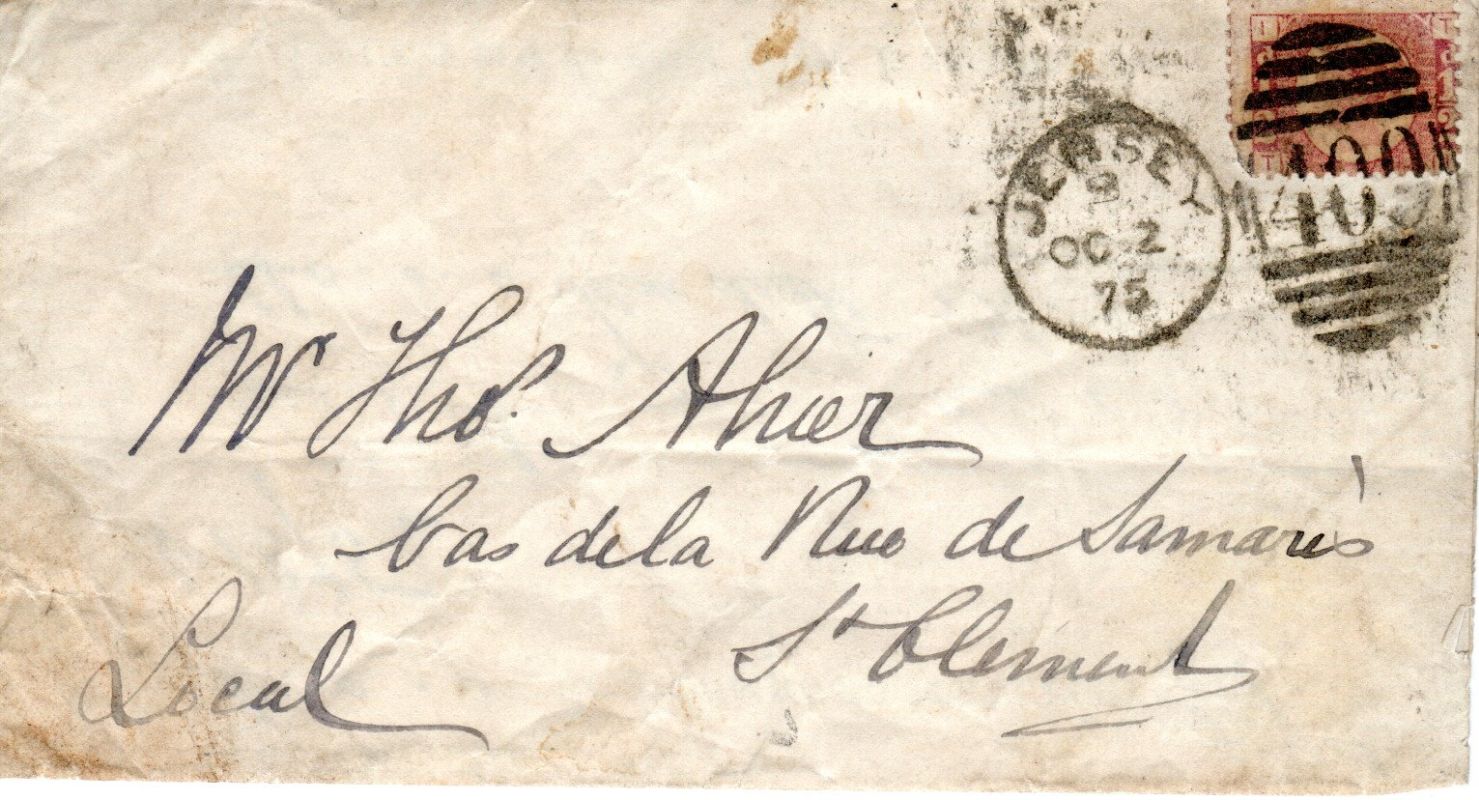 JERSEY
9
OC 2
75
409
Mr Thos. Ahier
bas de la Rue de Samarès
St Clement
Local